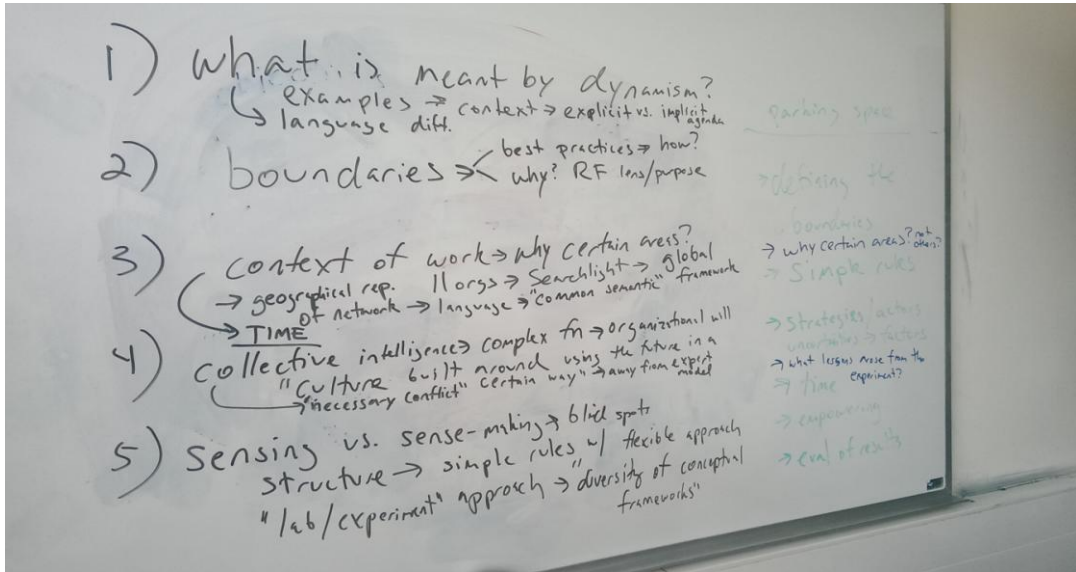 1) What is meant by dynamism?
↳ examples → context → explicit vs. implicit agenda
language diff.
2) boundaries → < best practices → how?
why? RF lens/purpose
3) Context of work → why certain areas?
→ geographical rep. 11 orgs → Searchlight → global
of network → language → "common semantic" framework
→ TIME
4) Collective intelligence → complex fn → organizational will
"Culture built around using the future in a
certain way" → away from expert model
→ "necessary conflict"
5) Sensing vs. sense-making → blid spots
structure → simple rules w/ flexible approach
"lab/experiment" approach → "diversity of conceptual
frameworks"
parking space
→ defining the
boundaries
→ why certain areas? not others?
→ Simple rules
→ Strategies/actors
uncertainties → factors
→ what lessons arose from the
experiment?
→ time
→ empowering
→ eval of results